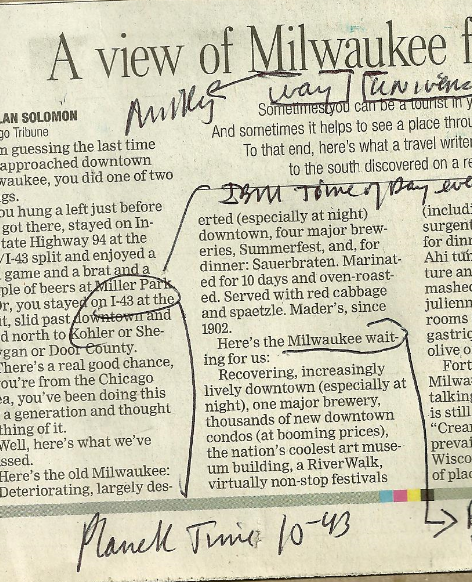 A view of Milwaukee f
way
LAN SOLOMON
go Tribune
Sometimes you can be a tourist in y
And sometimes it helps to see a place throu
To that end, here's what a travel writer
to the south discovered on a re
IBM Time of Day eve
m guessing the last time
approached downtown
waukee, you did one of two
gs.
ou hung a left just before
got there, stayed on In-
tate Highway 94 at the
/I-43 split and enjoyed a
game and a brat and a
ple of beers at Miller Park
Or, you stayed on I-43 at the
it, slid past downtown and
d north to Kohler or She-
ygan or Door County.
There's a real good chance,
ou're from the Chicago
ea, you've been doing this
a generation and thought
thing of it.
Well, here's what we've
ssed.
Here's the old Milwaukee:
Deteriorating, largely des-
erted (especially at night)
downtown, four major brew-
eries, Summerfest, and, for
dinner: Sauerbraten. Marinat-
ed for 10 days and oven-roast-
ed. Served with red cabbage
and spaetzle. Mader's, since
1902.
Here's the Milwaukee wait-
ing for us:
Recovering, increasingly
lively downtown (especially at
night), one major brewery,
thousands of new downtown
condos (at booming prices),
the nation's coolest art muse-
um building, a RiverWalk,
virtually non-stop festivals
(includi
surgent
for dinn
Ahi tun
ture an
mashed
julienn
rooms
gastriq
olive o
Fort
Milwa
talking
is still
"Crea
prevai
Wisco
of plac
Planck Time 10-43